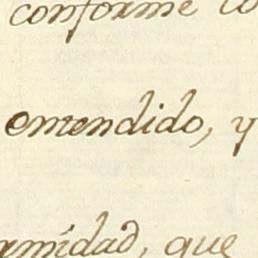 conforme lo
entendido, y
amidad, que